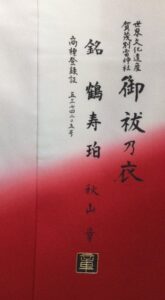 世界文化遺産
賀茂別雷神社
御祓乃衣
銘 鶴寿珀 秋山章
商標登録証 五三七四二〇五号
章